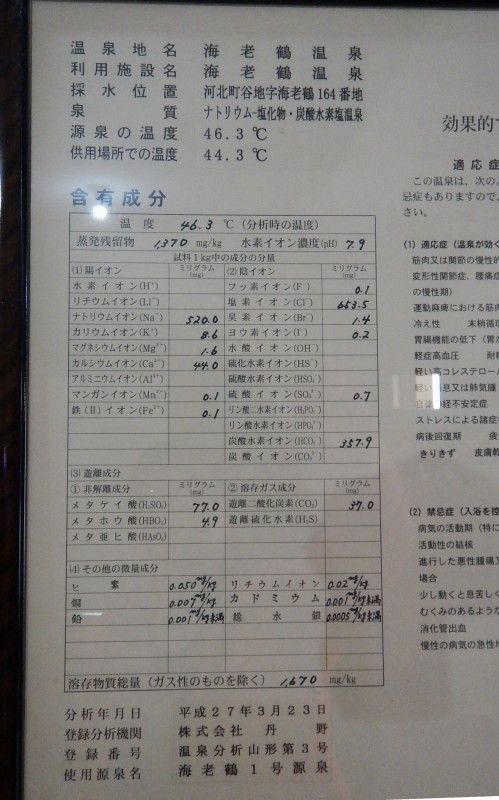 温泉地名 海老鶴温泉
利用施設名 海老鶴温泉
採水位置 河北町谷地字海老鶴164番地
泉質 ナトリウム-塩化物・炭酸水素塩温泉
源泉の温度 46.3℃
供用場所での温度 44.3℃
含有成分
温度 46.3 ℃ (分析時の温度)
蒸発残留物 1,370 mg/kg 水素イオン濃度(pH) 7.9
試料1kg中の成分の分量
(1)陽イオン ミリグラム(mg) (2)陰イオン ミリグラム(mg)
水素イオン(H⁺) フッ素イオン(F⁻) 0.1
リチウムイオン(Li⁺) 塩素イオン(Cl⁻) 653.5
ナトリウムイオン(Na⁺) 520.0 臭素イオン(Br⁻) 1.4
カリウムイオン(K⁺) 8.6 ヨウ素イオン(I⁻) 0.2
マグネシウムイオン(Mg²⁺) 1.6 水酸イオン(OH⁻)
カルシウムイオン(Ca²⁺) 44.0 硫化水素イオン(HS⁻)
アルミニウムイオン(Al³⁺) 硫酸水素イオン(HSO₄⁻)
マンガンイオン(Mn²⁺) 0.1 硫酸イオン(SO₄²⁻) 0.7
鉄(Ⅱ)イオン(Fe²⁺) 0.1 リン酸二水素イオン(H₂PO₄⁻)
リン酸水素イオン(HPO₄²⁻)
炭酸水素イオン(HCO₃⁻) 357.9
炭酸イオン(CO₃²⁻)
(3)遊離成分
① 非解離成分 ミリグラム(mg) ② 溶存ガス成分 ミリグラム(mg)
メタケイ酸(H₂SiO₃) 77.0 遊離二酸化炭素(CO₂) 37.0
メタホウ酸(HBO₂) 4.9 遊離硫化水素(H₂S)
メタ亜ヒ酸(HAsO₂)
(4)その他の微量成分
ヒ素 0.050mg/kg リチウムイオン 0.02mg/kg
銅 0.007mg/kg カドミウム 0.001mg/kg未満
鉛 0.001mg/kg未満 総水銀 0.0005mg/kg未満
溶存物質総量(ガス性のものを除く) 1,670 mg/kg
分析年月日 平成27年3月23日
登録分析機関 株式会社丹野
登録番号 温泉分析山形第3号
使用源泉名 海老鶴1号源泉
効果的
適応症
この温泉は、次の
忌症もありますので、
さい。
(1) 適応症(温泉が効く
筋肉又は関節の慢性的
変形性関節症、腰痛症
の慢性期)
運動麻痺における筋肉
冷え性 末梢循環
胃腸機能の低下(胃が
軽症高血圧 耐
軽い高コレステロール
軽い喘息又は肺気腫
自律神経不安定症
ストレスによる諸症
病後回復期 疲
きりきず 皮膚乾
(2) 禁忌症(入浴を控
病気の活動期(特に
活動性の結核
進行した悪性腫瘍又
場合
少し動くと息苦しく
むくみのあるような
消化管出血
慢性の病気の急性増